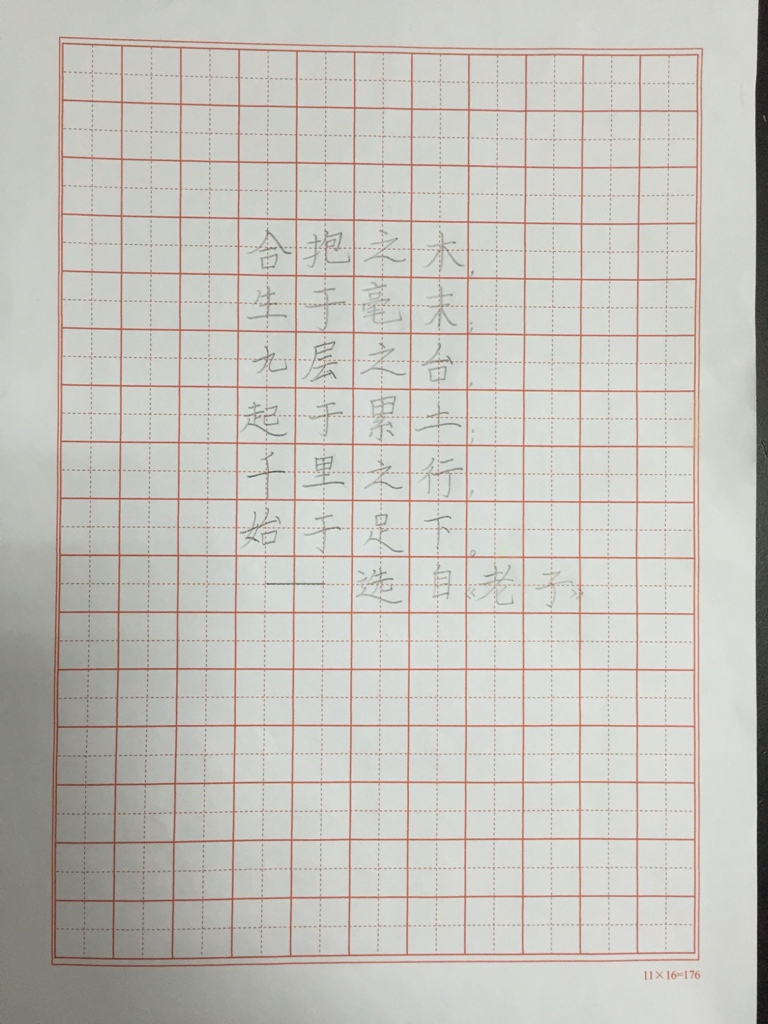 合抱之木，
生于毫末；
九层之台，
起于累土；
千里之行，
始于足下。
——选自《老子》
11×16=176